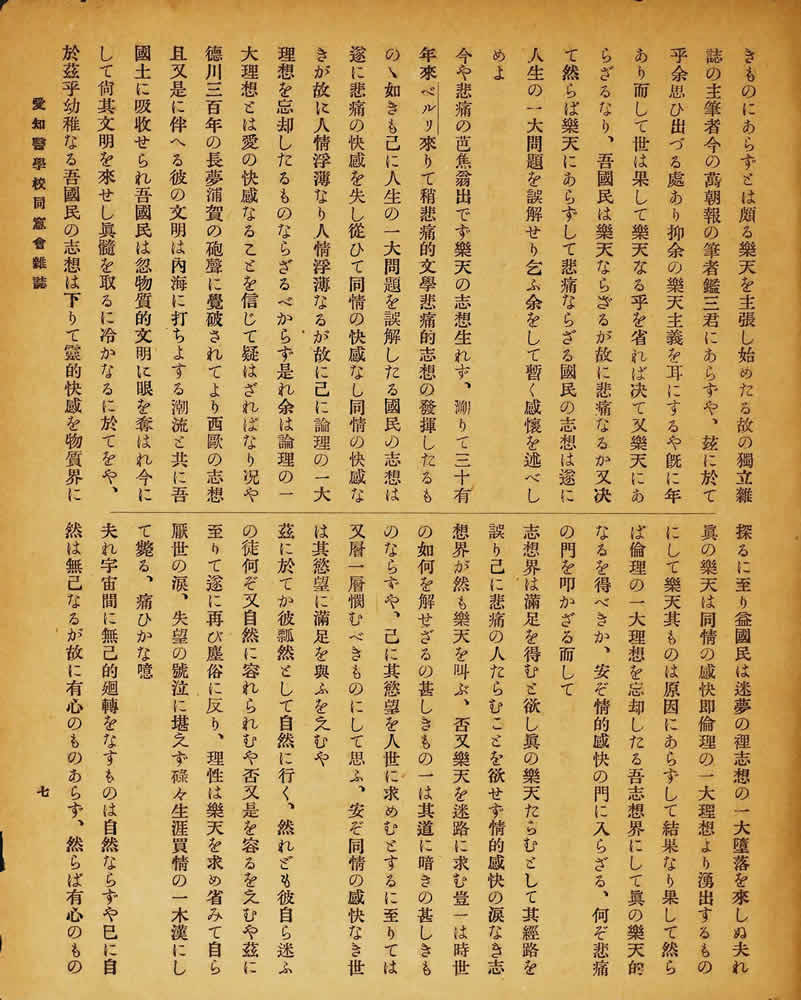 きものにあらずとは頗る樂天を主張し始めたる故の獨立雜
誌の主筆者今の萬朝報の筆者鑑三君にあらずや、玆に於て
乎余思ひ出づる處あり抑余の樂天主義を耳にするや旣に年
あり而して世は果して樂天なる乎を省れば决て又樂天にあ
らざるなり、吾國民は樂天ならざるが故に悲痛なるか又决
て然らば樂天にあらずして悲痛ならざる國民の志想は遂に
人生の一大問題を誤解せり乞ふ余をして暫く感懷を述べし
めよ
今や悲痛の芭焦翁出でず樂天の志想生れず、溯りて三十有
年來ペルリ來りて稍悲痛的文學悲痛的志想の發揮したるも
のゝ如きも己に人生の一大問題を誤解したる國民の志想は
遂に悲痛の快感を失し從ひて同情の快感なし同情の快感な
きが故に人情浮薄なり人情浮薄なるが故に己に論理の一大
理想を忘却したるものならざるべからず是れ余は論理の一
大理想とは愛の快感なることを信じて疑はざればなり况や
德川三百年の長夢浦賀の砲聲に覺破されてより西歐の志想
且又是に伴へる彼の文明は內海に打ちよする潮流と共に吾
國土に吸收せられ吾國民は忽物質的文明に眼を奪はれ今に
して尙其文明を來せし眞髓を取るに冷かなるに於てをや、
於玆乎幼稚なる吾國民の志想は下りて靈的快感を物質界に
探るに至り益國民は迷夢の裡志想の一大墮落を來しぬ夫れ
眞の樂天は同情の感快卽倫理の一大理想より湧出するもの
にして樂天其ものは原因にあらずして結果なり果して然ら
ば倫理の一大理想を忘却したる吾志想界にして眞の樂天的
なるを得べきか、安ぞ情的感快の門に入らざる、何ぞ悲痛
の門を叩かざる而して
志想界は滿足を得むと欲し眞の樂天たらむとして其經路を
誤り己に悲痛の人たらむことを欲せず情的感快の淚なき志
想界が然も樂天を叫ぶ、否又樂天を迷路に求む豈一は時世
の如何を解せざるの甚しきもの一は其道に暗きの甚しきも
のならずや、己に其慾望を人世に求めむとするに至りては
又層一層憫むべきものにして思ふ、安ぞ同情の感快なき世
は其慾望に滿足を與ふをえむや
玆に於てか彼瓢然として自然に行く、然れども彼自ら迷ふ
の徒何ぞ又自然に容れられむや否又是を容るをえむや玆に
至りて遂に再び塵俗に反り、理性は樂天を求め省みて自ら
厭世の淚、失望の號泣に堪えず碌々生涯買情の一木漢にし
て斃る、痛ひかな噫
夫れ宇宙間に無己的廻轉をなすものは自然ならずや巳に自
然は無己なるが故に有心のものあらず、然らば有心のもの
愛知醫學校同窓會雜誌
七